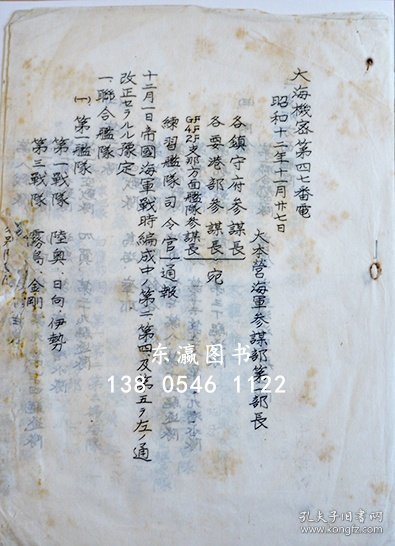 大海機密第四七番電
昭和十二年十一月廿七日
大本営海軍参謀部第一部長
各鎮守府参謀長
各要港部参謀長
GF 4F 2F 支那方面艦隊参謀長
宛
練習艦隊司令官
通報
十二月一日帝國海軍戦時編成中ノ第二、第四、及第五ヲ左ノ通
改正セラルル豫定
一、聯合艦隊
(一)第一艦隊
第一戦隊 陸奥、日向、伊勢
第三戦隊 霧島、金剛
东瀛图书
138 0546 1122
孔夫子旧书网
kongfz.com